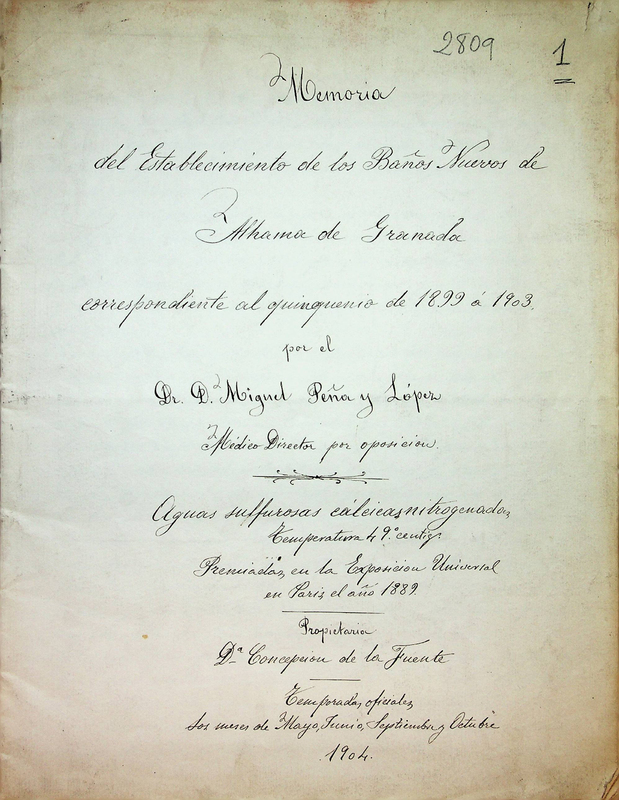 2809
1
Memoria
del Establecimiento de los Baños Nuevos de
Alhama de Granada
correspondiente al quinquenio de 1899 á 1903.
por el
Dr. D. Miguel Peña y López
Médico Director por oposicion.
Aguas sulfurosas cálcicas nitrogenadas
Temperatura 49.° centig.
Premiadas en la Exposicion Universal
en Paris el año 1889.
Propietaria
Dª Concepcion de la Fuente
Temporadas oficiales
Los meses de Mayo, Junio, Septiembre y Octubre
1904.